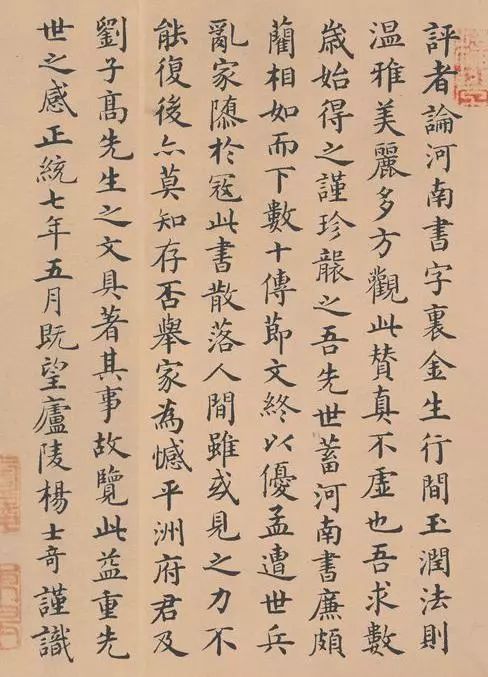 評者論河南書字裏金生行間玉潤法則
温雅美麗多方觀此賛真不虛也吾求數
歲始得之謹珍襲之吾先世蓄河南書廉頗
藺相如而下數十傳節文終以優孟遭世兵
亂家陏於冦此書散落人間雖或見之力不
能復後亦莫知存否舉家為憾平洲府君及
劉子髙先生之文具著其事故覽此益重先
世之感正統七年五月既望廬陵楊士竒謹識